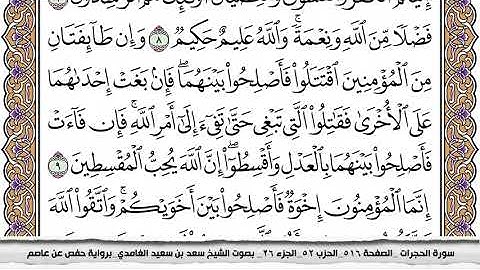 فَضْلًا مِّنَ ٱللَّهِ وَنِعْمَةً ۚ وَٱللَّهُ عَلِيمٌ حَكِيمٌ ٨ وَإِن طَآئِفَتَانِ
مِنَ ٱلْمُؤْمِنِينَ ٱقْتَتَلُوا۟ فَأَصْلِحُوا۟ بَيْنَهُمَا ۖ فَإِنۢ بَغَتْ إِحْدَىٰهُمَا
عَلَى ٱلْأُخْرَىٰ فَقَٰتِلُوا۟ ٱلَّتِى تَبْغِى حَتَّىٰ تَفِىٓءَ إِلَىٰٓ أَمْرِ ٱللَّهِ ۚ فَإِن فَآءَتْ
فَأَصْلِحُوا۟ بَيْنَهُمَا بِٱلْعَدْلِ وَأَقْسِطُوٓا۟ ۖ إِنَّ ٱللَّهَ يُحِبُّ ٱلْمُقْسِطِينَ ٩
إِنَّمَا ٱلْمُؤْمِنُونَ إِخْوَةٌ فَأَصْلِحُوا۟ بَيْنَ أَخَوَيْكُمْ ۚ وَٱتَّقُوا۟ ٱللَّهَ
سورة الحجرات _الصفحة ٥١٦_ الحزب ٥٢_الجزء ٢٦_ بصوت الشيخ سعد بن سعيد الغامدي_ برواية حفص عن عاصم